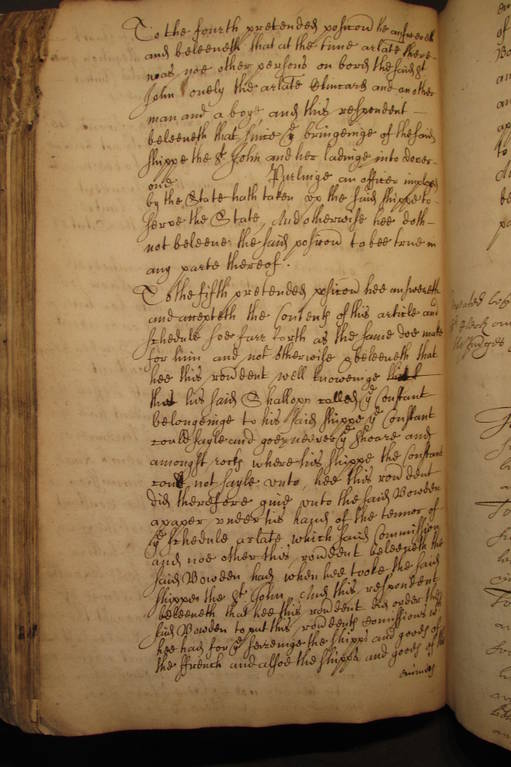 To the fourth pretended posicon he answereth
and beleeveth that at the time arlate there
was noe other persons on bord the said St
John onely the arlate Edward and an other
man and a boye and this respondent
beleeveth that since ye bringeinge of the said
shippe the St John and her ladinge into dover
one Purlinge an officer imployed
by the State hath taken vp the said shippe to
serve the State, And otherwise hee doth
not beleeve the said posicon to bee true in
any parte thereof.
To the fifth pretended posicon hee answereth
and accepteth the Contents of this article and
schedule soe farr forth as the same doe make
for him and not otherwise & beleeveth that
hee this rondent well knoweinge
that his said Shallopp called ye Constant
belongeinge to his said shippe ye Constant
could sayle and goe neerer ye shoare and
amongst rocks where his shippe the Constant
could not sayle vnto, hee this rondent
did therefore give vnto the said Bowden
a paper vnder his hand of the tennor of
ye schedule arlate which said Commission
and noe other this rondent beleeveth the
said Bowden had when hee tooke the said
shippe the St John, And this respondent
beleeveth that hee this rondent did order the
said Bowden to put this rondents comissions wch
hee had for ye seizeinge the shipps and goods of
the ffrench and alsoe the shipps and goods of the
enimies